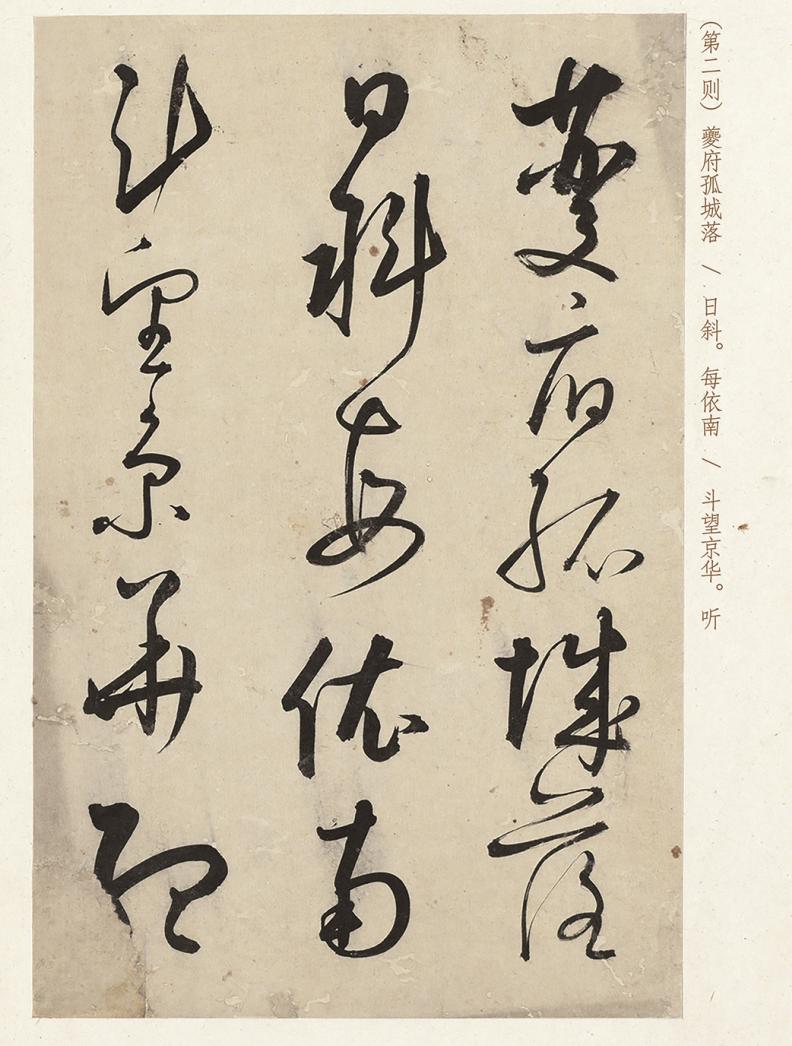 (第二则) 夔府孤城落 \ 日斜。每依南 \ 斗望京华。听
夔府孤城落
日斜每依南
斗望京華聽